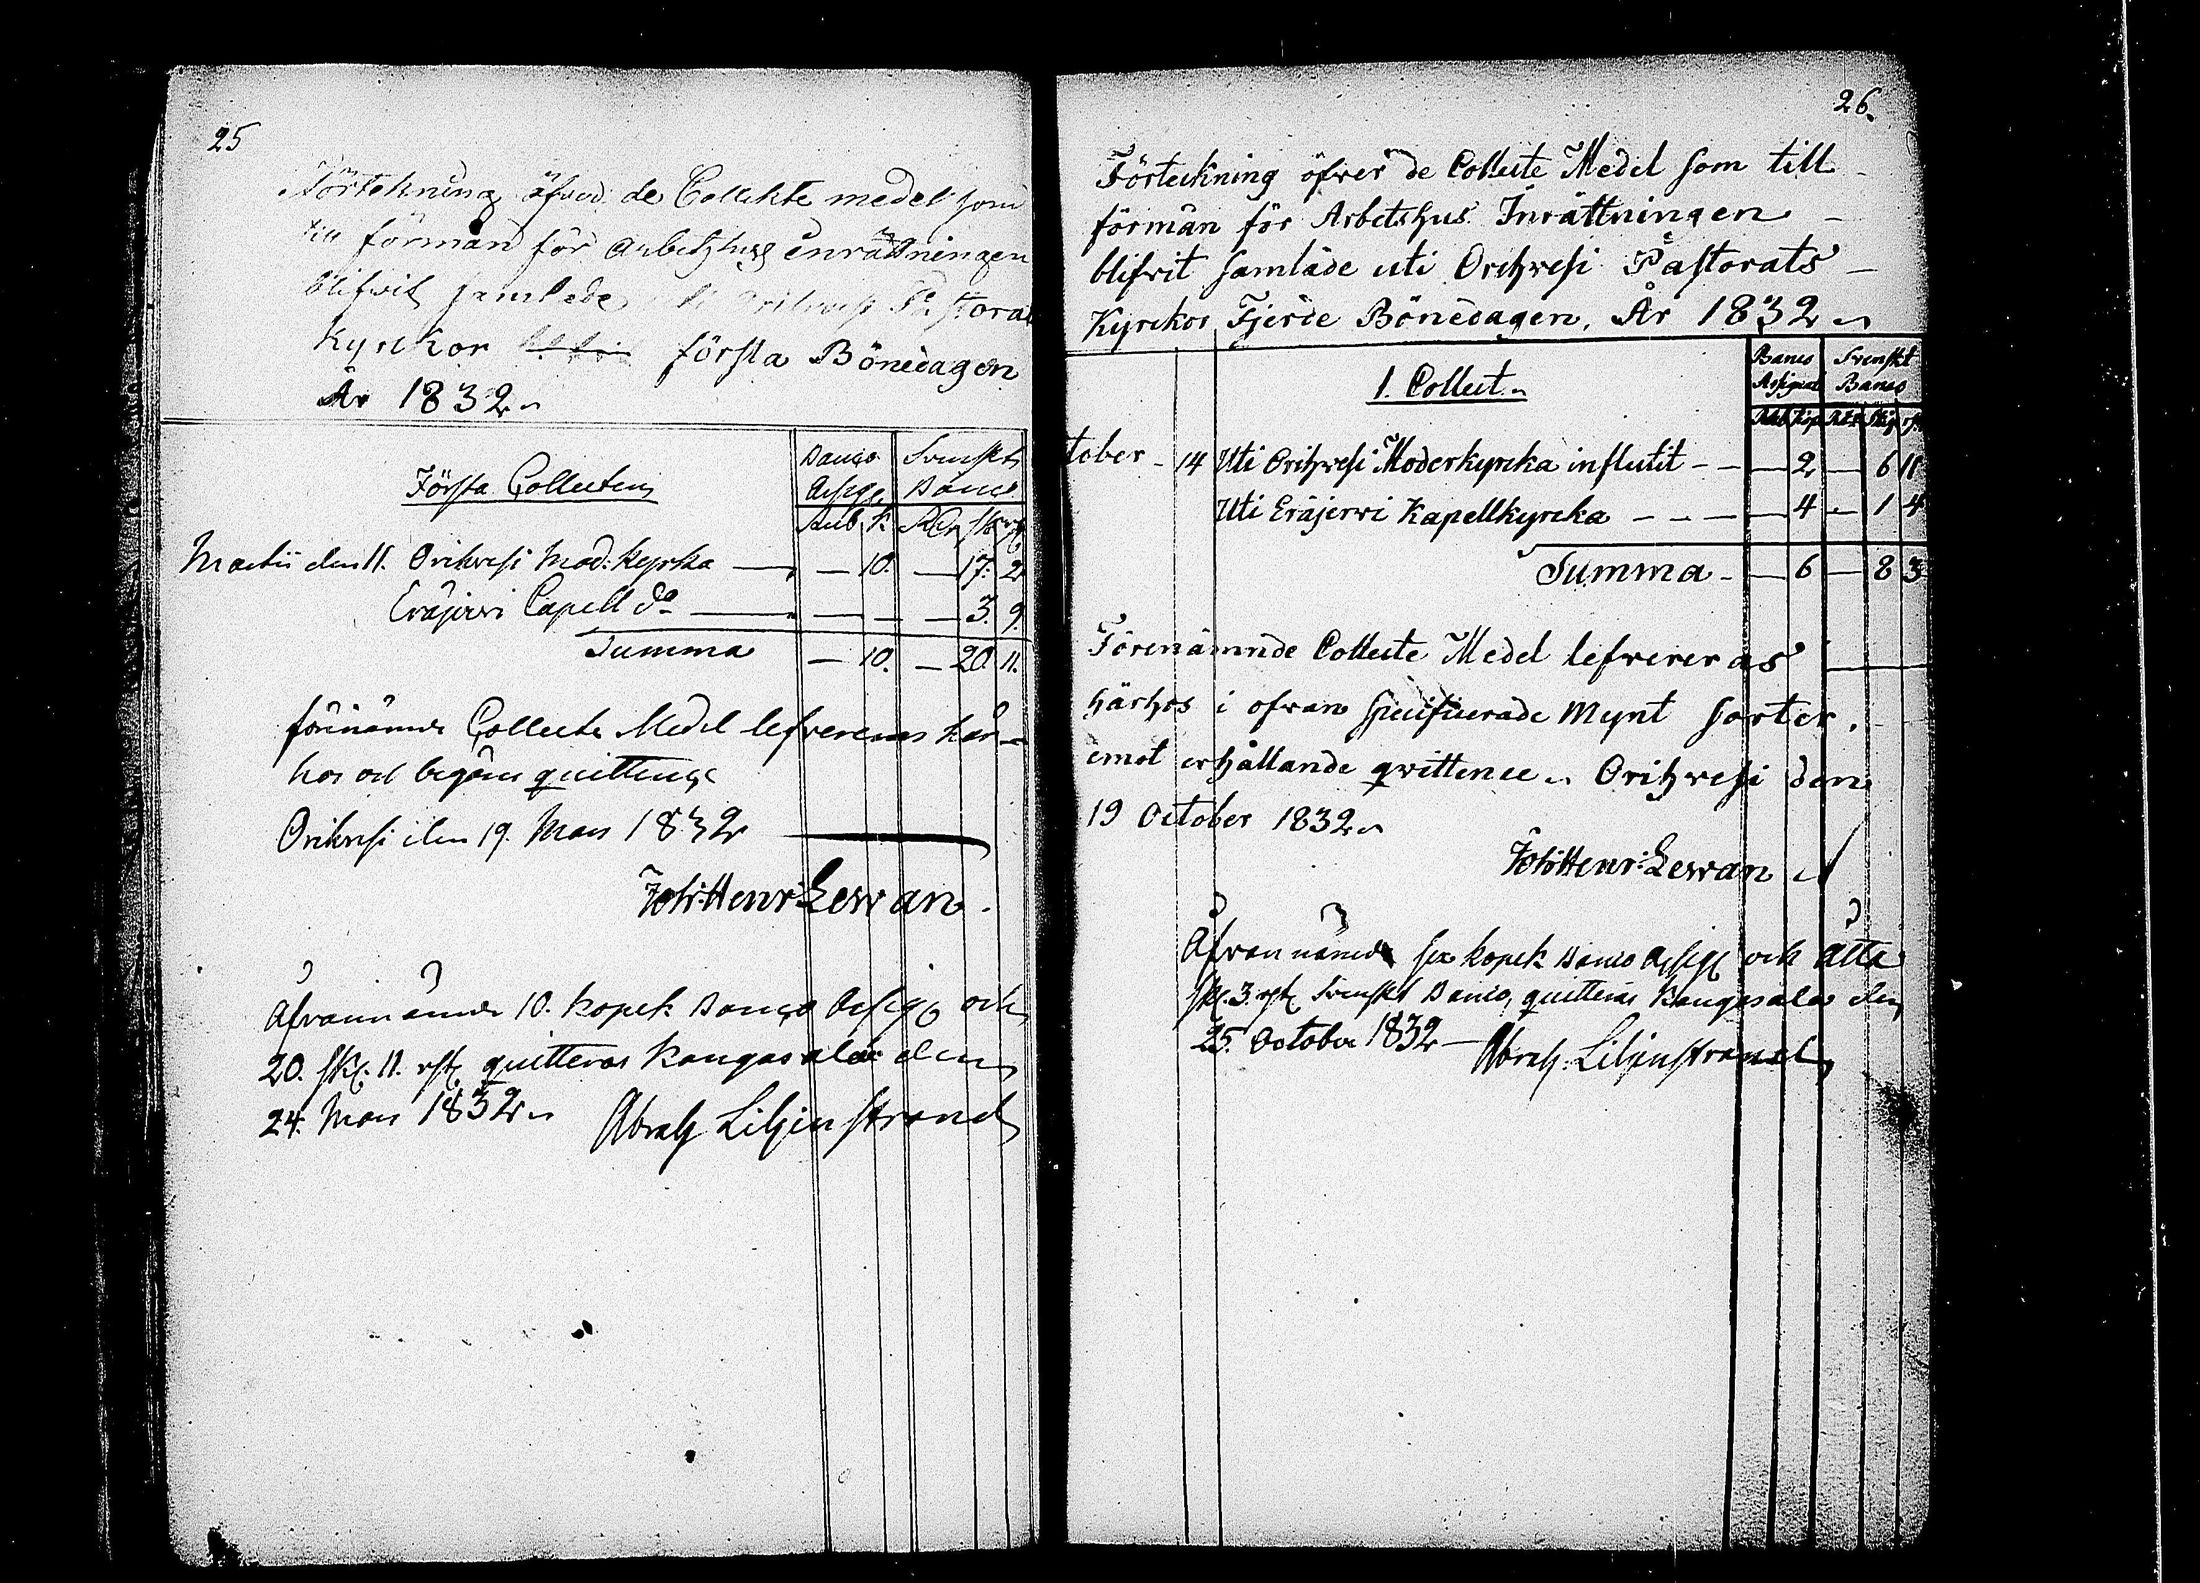 25
Förtekning öfver de Collekte medel som
till förmån för arbetzhus inrättningen
blifvit samlade uti Orihvesi Pastorats
Kyrckor första Bönedagen
År 1832
Första Collecten
Banco Assign:
Svenskt Banco
Rub. k. RDr sk rst
Martii den 11. Orihvesi Mod: kyrka — — 10. — 17. 2
Eräjervi Capell do — — — — 3. 9.
Summa — 10. — 20. 11.
förenämnde Collecte Medel lefvereras här-
hos och begäres quittence
Orihvesi den 19. Mars 1832
Joh: Henr: Lewan.
Åfvannämde 10. kopek Banco Assign och
20. sk. 11. rst. quitteras Kangasala den
24. Mars 1832
Abrah Liljenstrand
26.
Förteckning öfver de Collecte Medel som till
förmån för Arbetshus Inrättningen
blifvit samlade uti Orihvesi Pastorats
Kyrckor Fjerde Bönedagen, År 1832
1. Collect.
Banco Assignat
Svenskt Banco
Rub Kop Rdr Skg rst
tober - 14 Uti Orihvesi Moderkyrcka influtit - - — 2 — 6 11
Uti Eräjervi Kapellkyrcka - - - — 4 - 1 4
Summa - — 6 — 8 3
Förenämnde Collecte Medel lefvereras
härhos i ofvan specificerade Mynt sorter,
emot erhållande qvittence Orihvesi den
19 October 1832
Joh: Henr: Lewan
Åfvannämde sex kopek Banco Assig och åtta
sk. 3. rst. Svenskt Banco, quitteras Kangasala den
25. October 1832 — Abrah: Liljenstrand